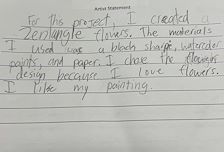 Artist Statement
For this project, I created a
Zentangle flowers. The materials
I used was a black sharpie, watercolor
paints, and paper. I chose the flowers
design because I love flowers.
I like my painting.